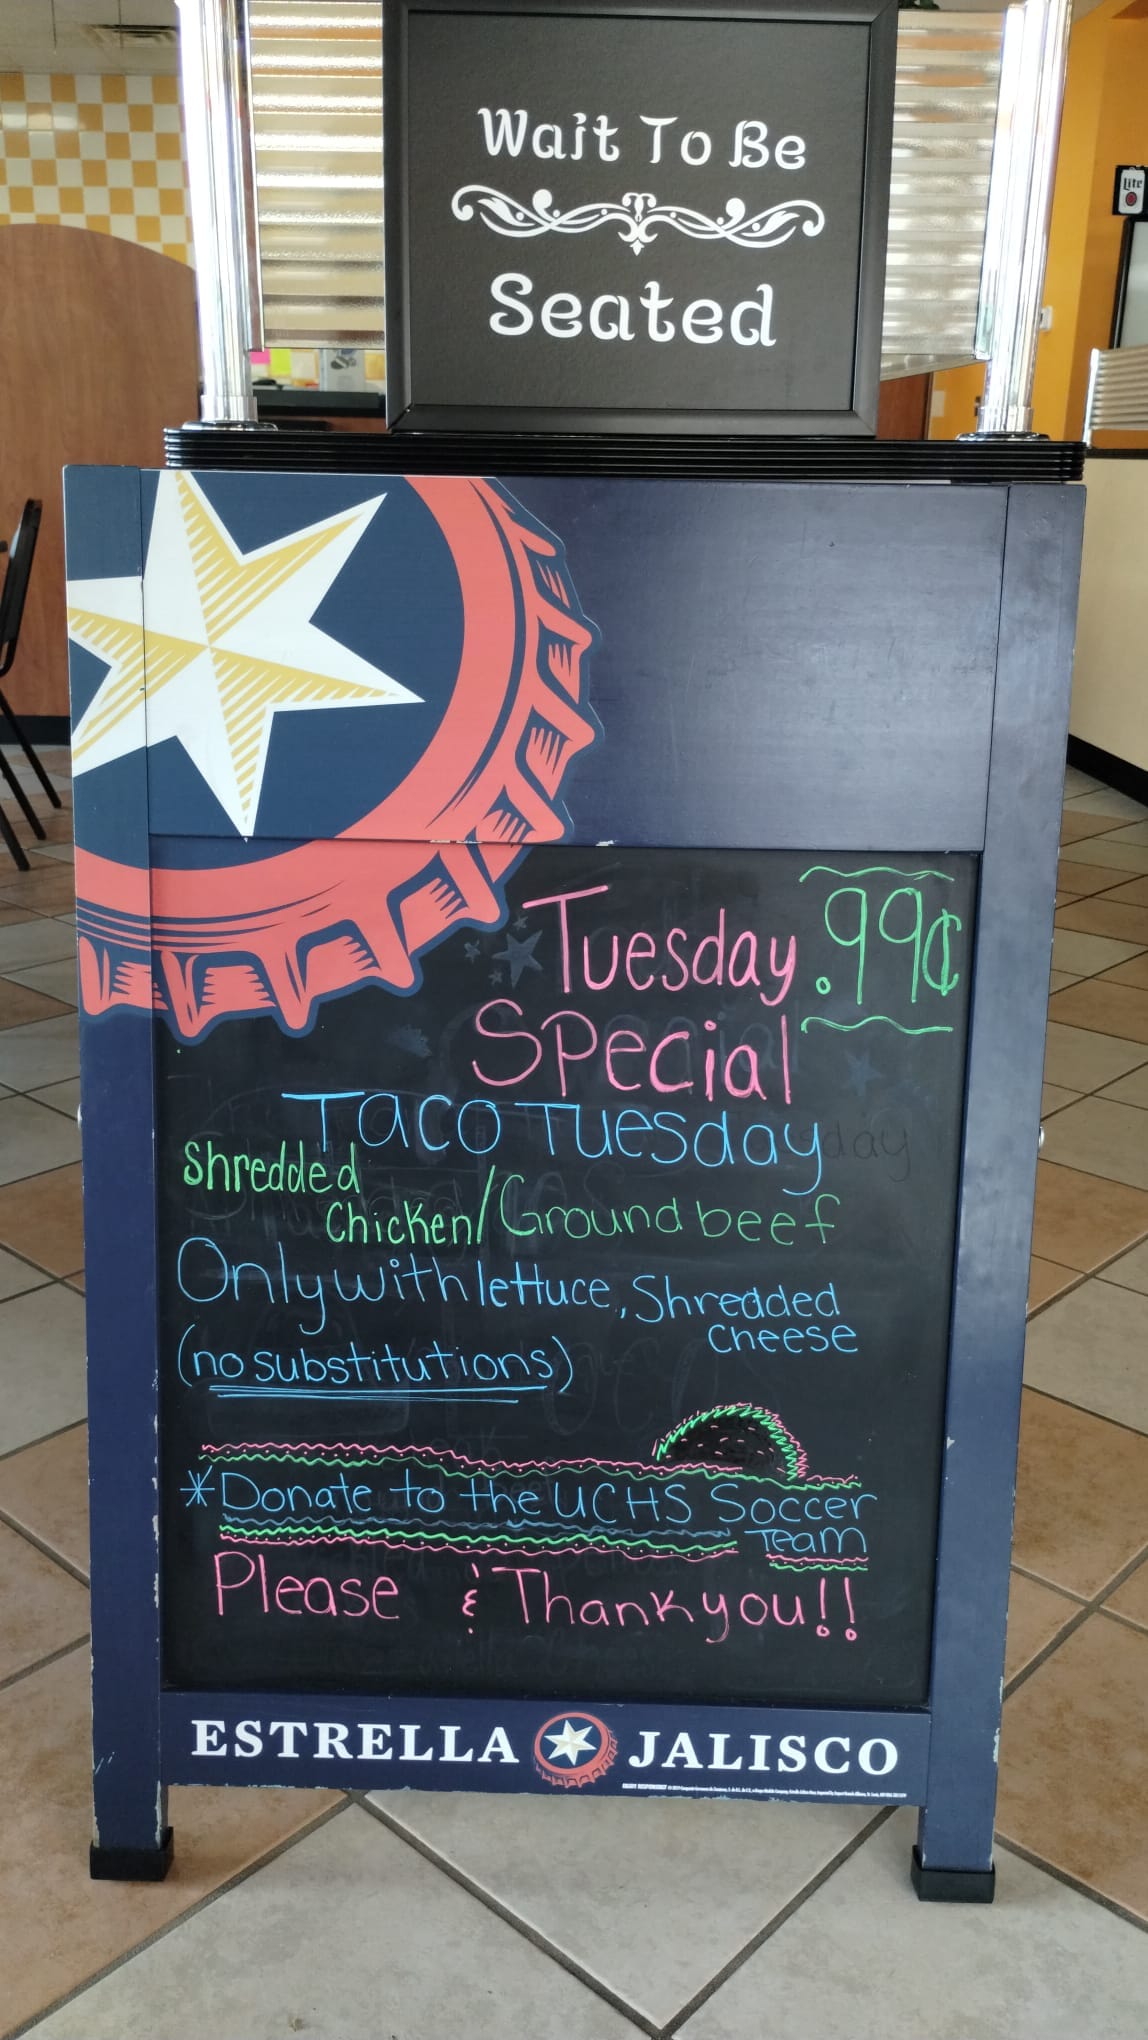 Wait To Be
Seated
Lite
Tuesday .99¢
Special
Taco Tuesday
Shredded
Chicken/Ground beef
Only with lettuce, Shredded
cheese
(no substitutions)
*Donate to the UCHS Soccer
Team
Please & Thank you!!
ESTRELLA JALISCO